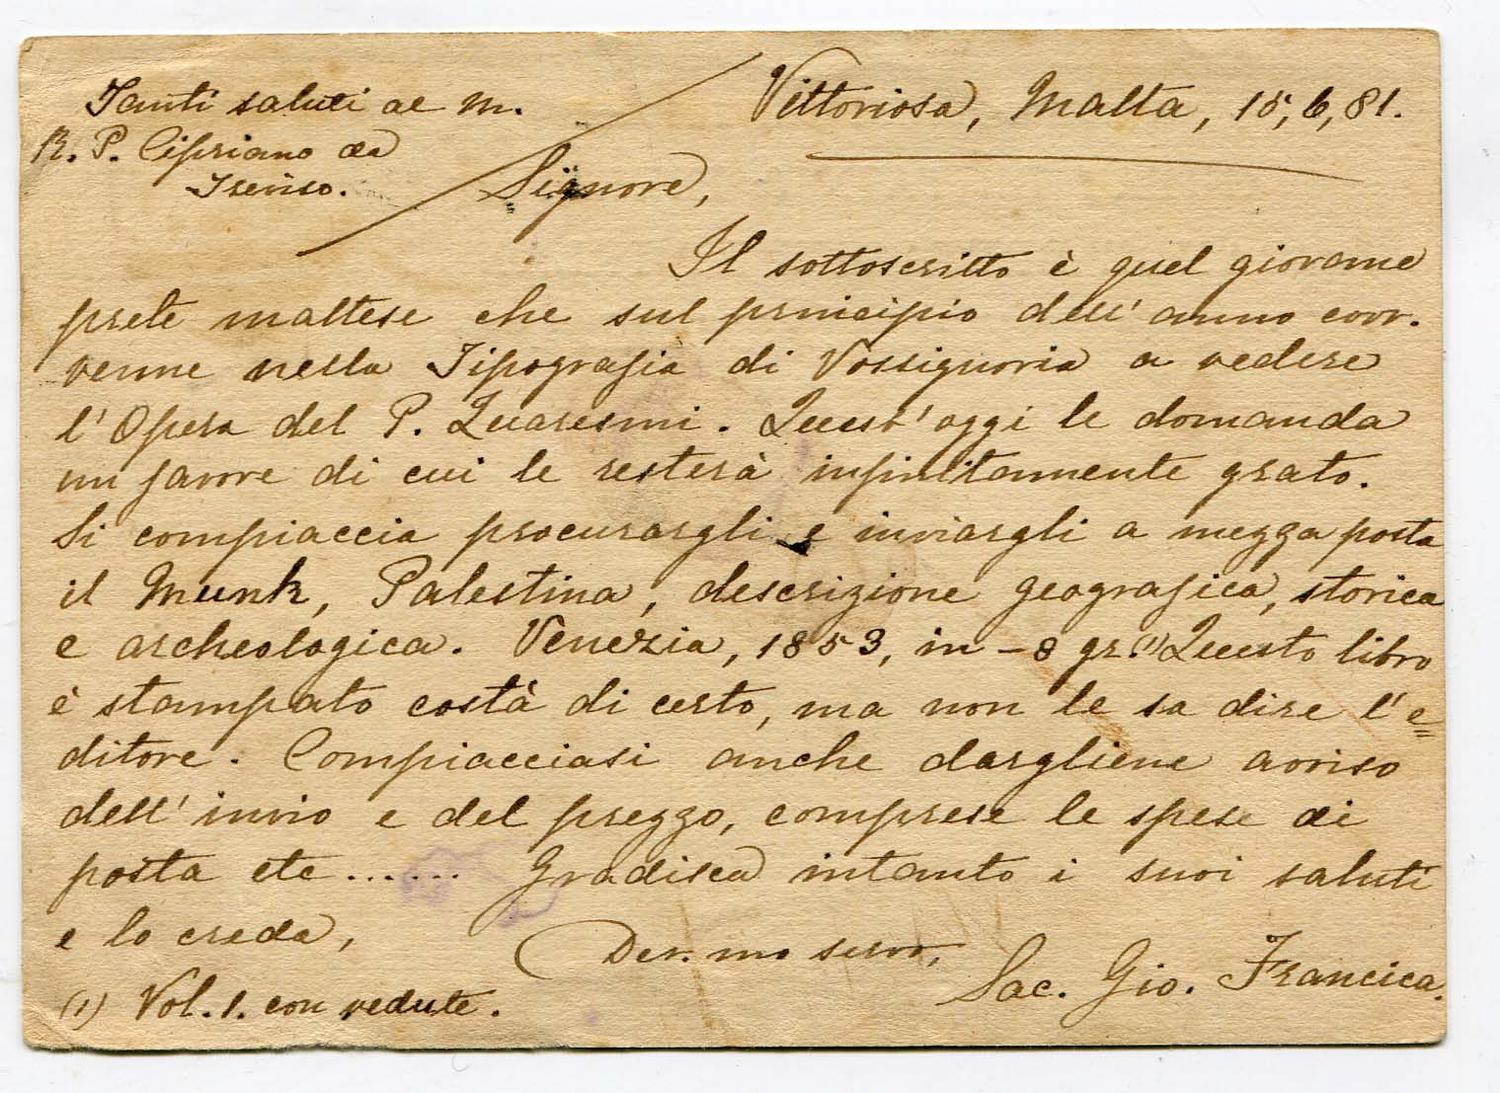 Tanti saluti al M.
R. P. Cipriano da
Treviso.
Vittoriosa, Malta, 15, 6, 81.
Signore,
Il sottoscritto è quel giovane
prete maltese che sul principio dell'anno corr.
venne nella Tipografia di Vossignoria a vedere
l'Opera del P. Quaresmi. Quest'oggi le domanda
un favore di cui le resterà infinitamente grato.
Si compiaccia procurargli e inviargli a mezza posta
il Munk, Palestina, descrizione geografica, storica
e archeologica. Venezia, 1853, in-8 gr.(1) Questo libro
è stampato costà di certo, ma non le sa dire l'e=
ditore. Compiacciasi anche dargliene avviso
dell'invio e del prezzo, comprese le spese di
posta etc...... Gradisca intanto i suoi saluti
e lo creda,
Dev.mo servo,
Sac. Gio. Francica.
(1) Vol. 1. con vedute.